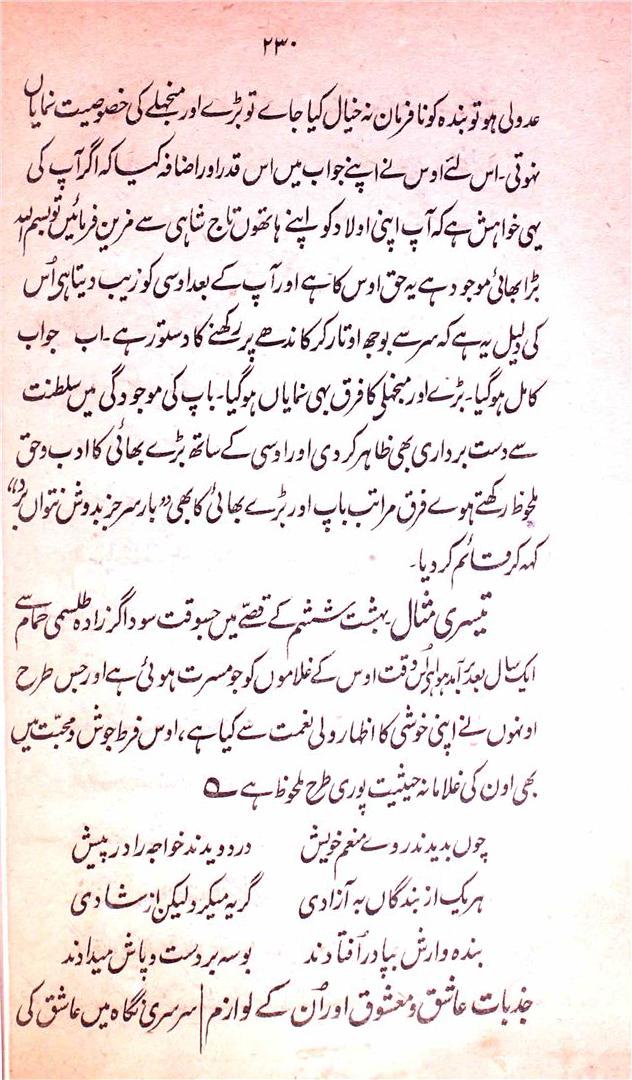 ۲۳۰
عدولی ہو تو بندہ کو نافرمان نہ خیال کیا جاے تو بڑے اور منجھلے کی خصوصیت نمایاں
نہوتی۔ اس لئے اوس نے اپنے جواب میں اس قدر اور اضافہ کیا کہ اگر آپ کی
یہی خواہش ہے کہ آپ اپنی اولاد کو اپنے ہاتھوں تاج شاہی سے مزین فرمائیں تو بسم اللہ
بڑا بھائی موجود ہے یہ حق اوس کا ہے اور آپ کے بعد اوسی کو زیب دیتا ہی اُس
کی دلیل یہ ہے کہ سر سے بوجھ اوتار کر کاندھے پر رکھنے کا دستور ہے۔ اب جواب
کامل ہوگیا۔ بڑے اور منجھلی کا فرق بہی نمایاں ہوگیا۔ باپ کی موجودگی میں سلطنت
سے دست برداری بھی ظاہر کر دی اور اوسی کے ساتھ بڑے بھائی کا ادب و حق
ملحوظ رکھتے ہوے فرق مراتب باپ اور بڑے بھائی کا بھی ”بار سر جز بدوش نتواں برد“
کہہ کر قائم کر دیا۔
تیسری مثال۔ بہشت ششم کے قصّے میں جسوقت سوداگر زادہ طلسمی حمام سے
ایک سال بعد برآمد ہوا ہی اُس وقت اوس کے غلاموں کو جو مسرت ہوئی ہے اور جس طرح
اونہوں نے اپنی خوشی کا اظہار ولی نعمت سے کیا ہے، اوس فرط جوش و محبّت میں
بھی اون کی غلامانہ حیثیت پوری طرح ملحوظ ہے ؎
چوں بدیدند روے منعم خویش در دویدند خواجہ را در پیش
ہر یک از بندگاں بہ آزادی گریہ میکرد لیکن از شادی
بندہ وارش بپا در اُفتادند بوسہ بر دست و پاش میدادند
جذبات عاشق و معشوق اور اُن کے لوازم | سرسری نگاہ میں عاشق کی